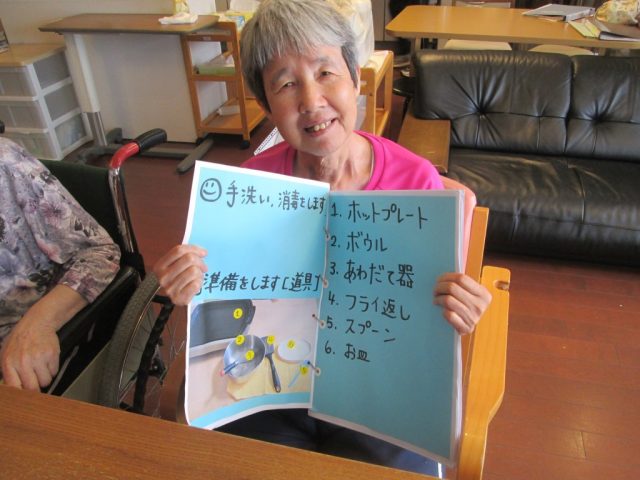 手洗い、消毒をします
準備をします[道具]
1. ホットプレート
2. ボウル
3. あわだて器
4. フライ返し
5. スプーン
6. お皿